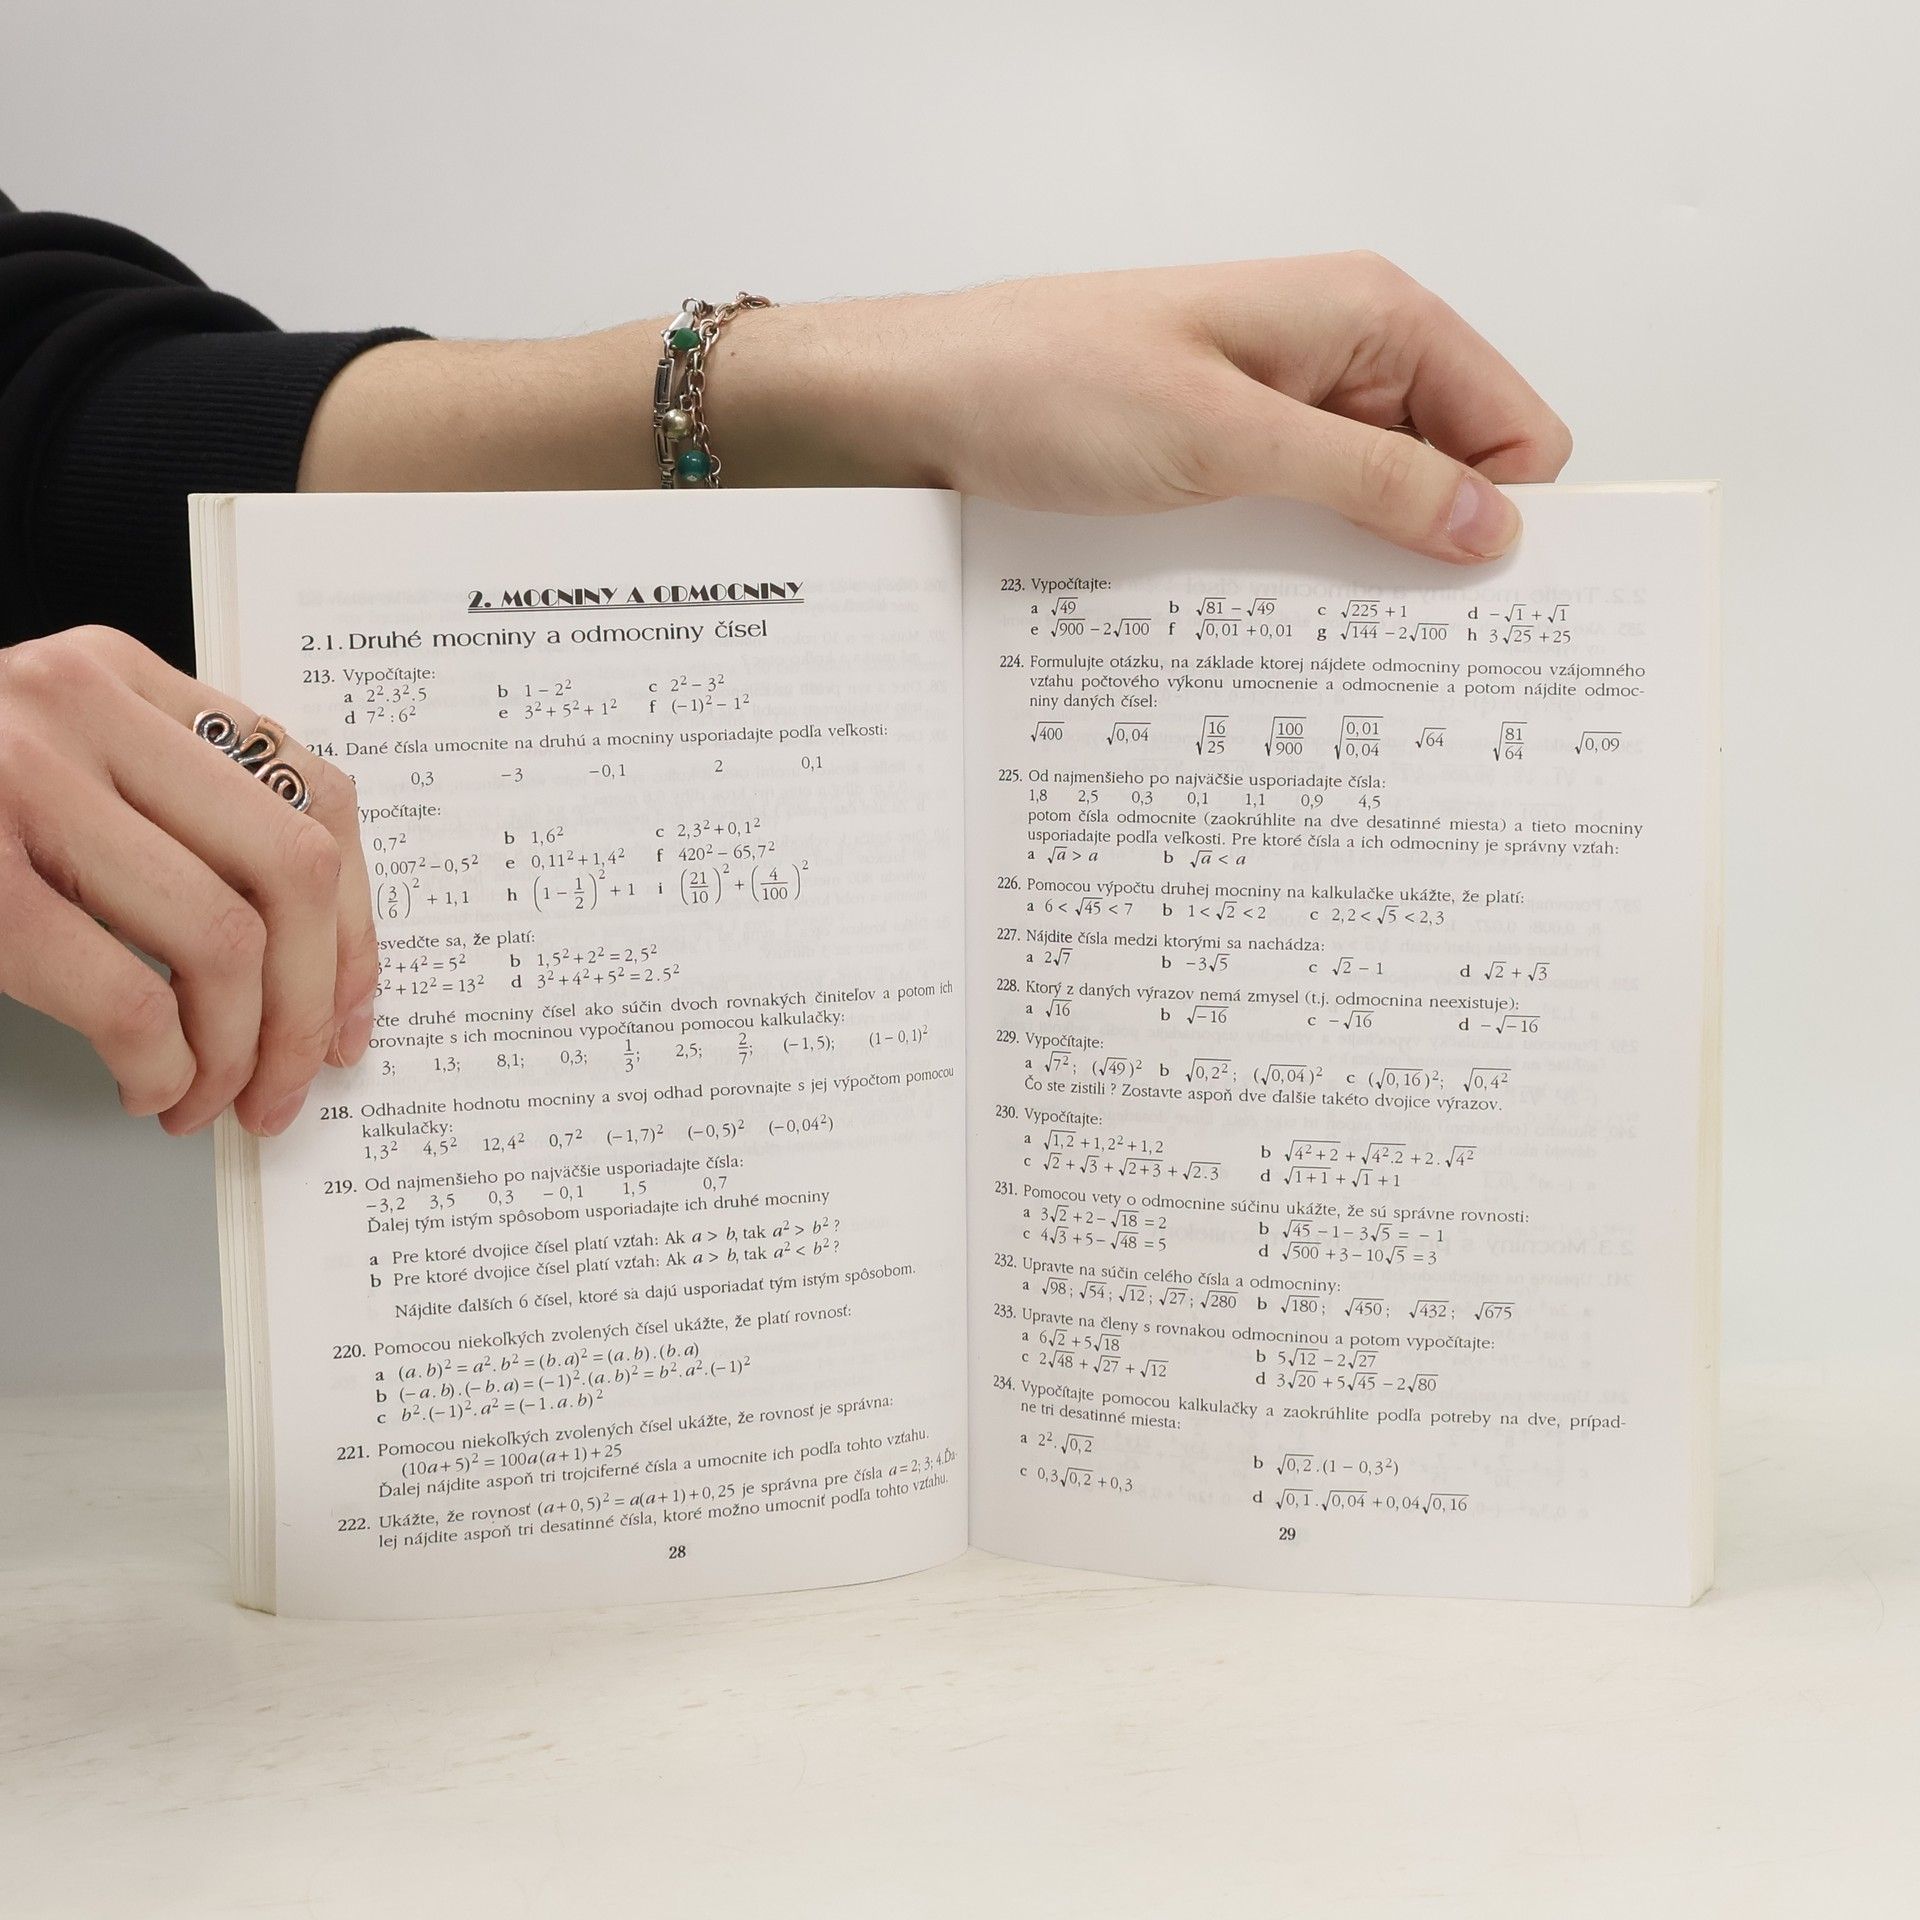 2. MOCNINY A ODMOCNINY
2.1. Druhé mocniny a odmocniny čísel
213. Vypočítajte:
a 2².3².5 b 1 − 2² c 2² − 3²
d 7² : 6² e 3² + 5² + 1² f (−1)² − 1²
214. Dané čísla umocnite na druhú a mocniny usporiadajte podľa veľkosti:
3 0,3 −3 −0,1 2 0,1
ypočítajte:
0,7² b 1,6² c 2,3² + 0,1²
0,007² − 0,5² e 0,11² + 1,4² f 420² − 65,7²
(3/6)² + 1,1 h (1 − 1/2)² + 1 i (21/10)² + (4/100)²
esvedčte sa, že platí:
3² + 4² = 5² b 1,5² + 2² = 2,5²
5² + 12² = 13² d 3² + 4² + 5² = 2.5²
rčte druhé mocniny čísel ako súčin dvoch rovnakých činiteľov a potom ich
orovnajte s ich mocninou vypočítanou pomocou kalkulačky:
3; 1,3; 8,1; 0,3; 1/3; 2,5; 2/7; (−1,5); (1−0,1)²
218. Odhadnite hodnotu mocniny a svoj odhad porovnajte s jej výpočtom pomocou
kalkulačky:
1,3² 4,5² 12,4² 0,7² (−1,7)² (−0,5)² (−0,04²)
219. Od najmenšieho po najväčšie usporiadajte čísla:
−3,2 3,5 0,3 −0,1 1,5 0,7
Ďalej tým istým spôsobom usporiadajte ich druhé mocniny
a Pre ktoré dvojice čísel platí vzťah: Ak a > b, tak a² > b² ?
b Pre ktoré dvojice čísel platí vzťah: Ak a > b, tak a² < b² ?
Nájdite ďalších 6 čísel, ktoré sa dajú usporiadať tým istým spôsobom.
220. Pomocou niekoľkých zvolených čísel ukážte, že platí rovnosť:
a (a.b)² = a².b² = (b.a)² = (a.b).(b.a)
b (−a.b).(−b.a) = (−1)².(a.b)² = b².a².(−1)²
c b².(−1)².a² = (−1.a.b)²
221. Pomocou niekoľkých zvolených čísel ukážte, že rovnosť je správna:
(10a+5)² = 100a(a+1)+25
Ďalej nájdite aspoň tri trojciferné čísla a umocnite ich podľa tohto vzťahu.
222. Ukážte, že rovnosť (a+0,5)² = a(a+1)+0,25 je správna pre čísla a = 2; 3; 4. Ďa-
lej nájdite aspoň tri desatinné čísla, ktoré možno umocniť podľa tohto vzťahu.
28
223. Vypočítajte:
a √49 b √81 − √49 c √225 + 1 d −√1 + √1
e √900 − 2√100 f √0,01 + 0,01 g √144 − 2√100 h 3√25 + 25
224. Formulujte otázku, na základe ktorej nájdete odmocniny pomocou vzájomného
vzťahu počtového výkonu umocnenie a odmocnenie a potom nájdite odmoc-
niny daných čísel:
√400 √0,04 √(16/25) √(100/900) √(0,01/0,04) √64 √(81/64) √0,09
225. Od najmenšieho po najväčšie usporiadajte čísla:
1,8 2,5 0,3 0,1 1,1 0,9 4,5
potom čísla odmocnite (zaokrúhlite na dve desatinné miesta) a tieto mocniny
usporiadajte podľa veľkosti. Pre ktoré čísla a ich odmocniny je správny vzťah:
a √a > a b √a < a
226. Pomocou výpočtu druhej mocniny na kalkulačke ukážte, že platí:
a 6 < √45 < 7 b 1 < √2 < 2 c 2,2 < √5 < 2,3
227. Nájdite čísla medzi ktorými sa nachádza:
a 2√7 b −3√5 c √2 − 1 d √2 + √3
228. Ktorý z daných výrazov nemá zmysel (t.j. odmocnina neexistuje):
a √16 b √−16 c −√16 d −√−16
229. Vypočítajte:
a √7²; (√49)² b √0,2²; (√0,04)² c (√0,16)²; √0,4²
Čo ste zistili ? Zostavte aspoň dve ďalšie takéto dvojice výrazov.
230. Vypočítajte:
a √1,2 + 1,2² + 1,2 b √(4²+2) + √(4².2) + 2.√4²
c √2 + √3 + √(2+3) + √(2.3) d √(1+1) + √1 + 1
231. Pomocou vety o odmocnine súčinu ukážte, že sú správne rovnosti:
a 3√2 + 2 − √18 = 2 b √45 − 1 − 3√5 = −1
c 4√3 + 5 − √48 = 5 d √500 + 3 − 10√5 = 3
232. Upravte na súčin celého čísla a odmocniny:
a √98; √54; √12; √27; √280 b √180; √450; √432; √675
233. Upravte na členy s rovnakou odmocninou a potom vypočítajte:
a 6√2 + 5√18 b 5√12 − 2√27
c 2√48 + √27 + √12 d 3√20 + 5√45 − 2√80
234. Vypočítajte pomocou kalkulačky a zaokrúhlite podľa potreby na dve, prípad-
ne tri desatinné miesta:
a 2².√0,2 b √0,2.(1 − 0,3²)
c 0,3√0,2 + 0,3 d √0,1.√0,04 + 0,04√0,16
29